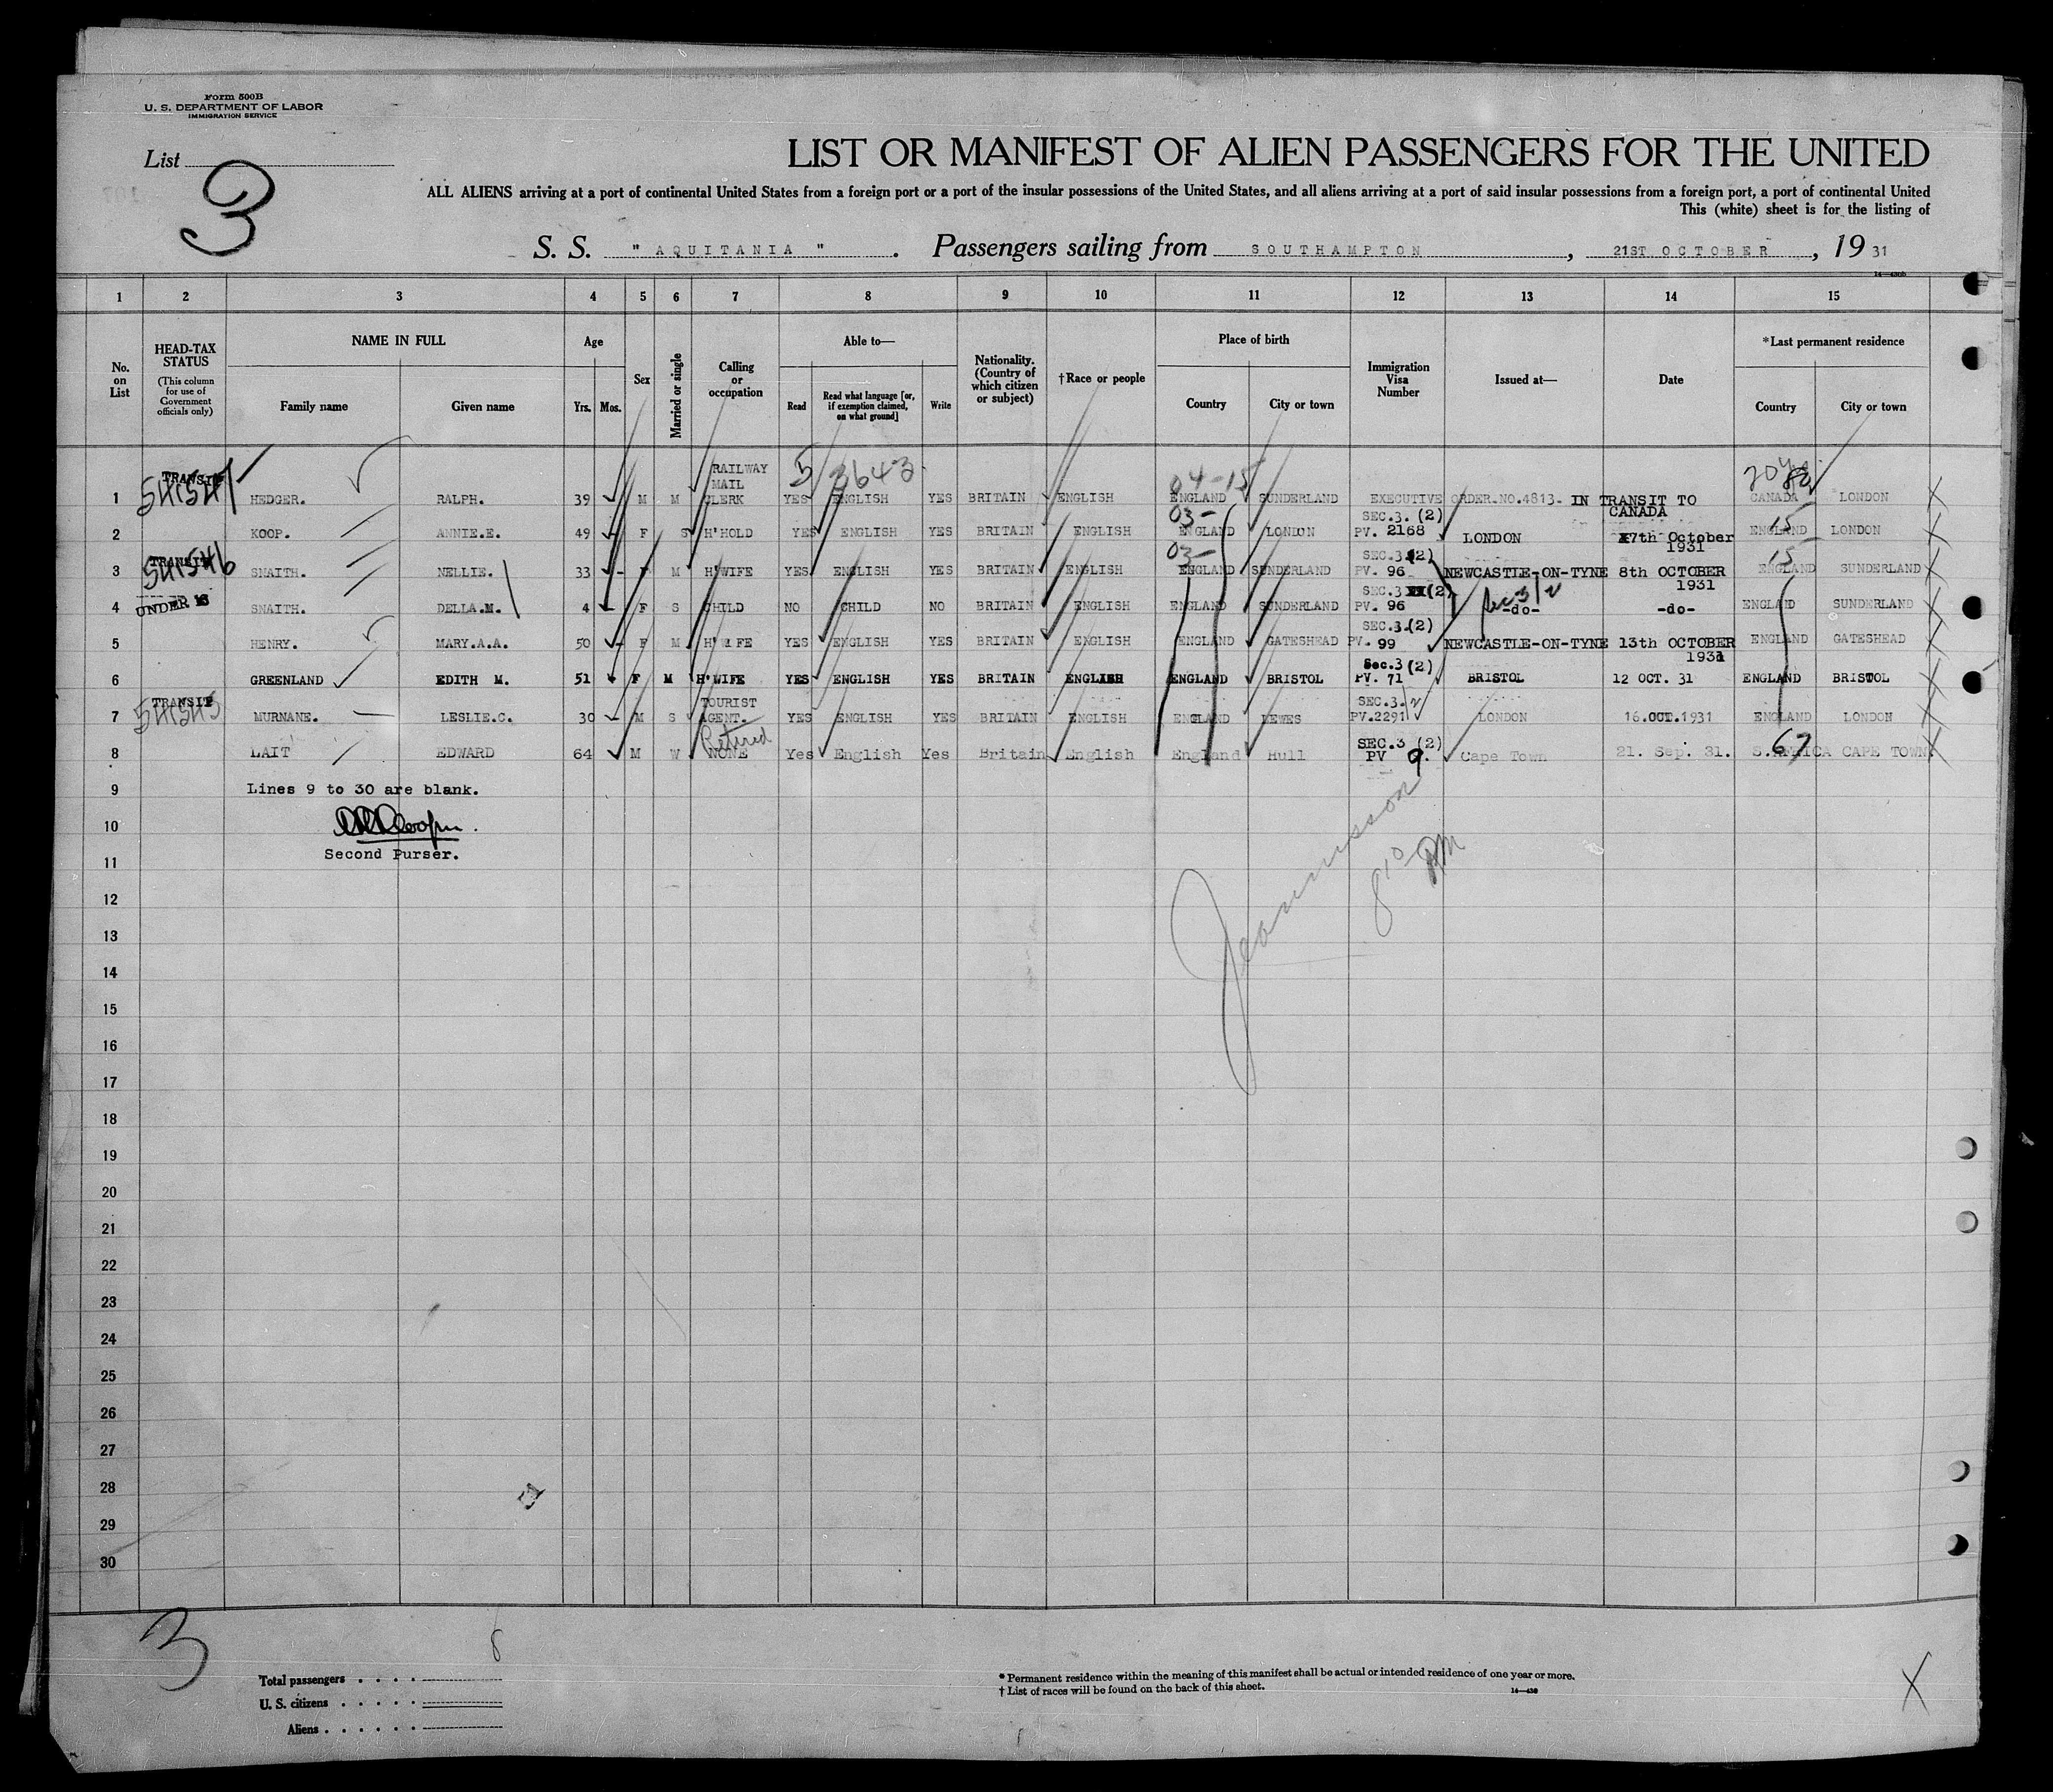 Form 500B
U. S. DEPARTMENT OF LABOR
IMMIGRATION SERVICE
List
3
LIST OR MANIFEST OF ALIEN PASSENGERS FOR THE UNITED
ALL ALIENS arriving at a port of continental United States from a foreign port or a port of the insular possessions of the United States, and all aliens arriving at a port of said insular possessions from a foreign port, a port of continental United
This (white) sheet is for the listing of
S. S. " AQUITANIA ". Passengers sailing from SOUTHAMPTON, 21ST OCTOBER, 19 31
14—430b
1 2 3 4 5 6 7 8 9 10 11 12 13 14 15
No. on List
HEAD-TAX STATUS (This column for use of Government officials only)
NAME IN FULL
Family name Given name
Age
Yrs. Mos.
Sex
Married or single
Calling or occupation
Able to—
Read Read what language [or, if exemption claimed, on what ground] Write
Nationality. (Country of which citizen or subject)
†Race or people
Place of birth
Country City or town
Immigration Visa Number
Issued at—
Date
*Last permanent residence
Country City or town
TRANSIT RAILWAY MAIL 5 3643 04-15
1 541547 HEDGER. RALPH. 39 M M CLERK YES ENGLISH YES BRITAIN ENGLISH ENGLAND SUNDERLAND EXECUTIVE ORDER.NO.4813. IN TRANSIT TO CANADA CANADA LONDON X
03- SEC.3. (2) 15
2 KOOP. ANNIE.E. 49 F S H'HOLD YES ENGLISH YES BRITAIN ENGLISH ENGLAND LONDON PV. 2168 LONDON 17th October 1931 ENGLAND LONDON X
TRANSIT 03- SEC.3 (2) 15
3 541546 SNAITH. NELLIE. 33 - F M H'WIFE YES ENGLISH YES BRITAIN ENGLISH ENGLAND SUNDERLAND PV. 96 NEWCASTLE-ON-TYNE 8th OCTOBER 1931 ENGLAND SUNDERLAND X
SEC.3 (2) Sec 3/2
4 UNDER 16 SNAITH. DELLA.M. 4 - F S CHILD NO CHILD NO BRITAIN ENGLISH ENGLAND SUNDERLAND PV. 96 -do- -do- ENGLAND SUNDERLAND X
SEC.3.(2)
5 HENRY. MARY.A.A. 50 - F M H'WIFE YES ENGLISH YES BRITAIN ENGLISH ENGLAND GATESHEAD PV. 99 NEWCASTLE-ON-TYNE 13th OCTOBER 1931 ENGLAND GATESHEAD X
Sec.3 (2)
6 GREENLAND EDITH M. 51 F M H'WIFE YES ENGLISH YES BRITAIN ENGLISH ENGLAND BRISTOL PV. 71 BRISTOL 12 OCT. 31 ENGLAND BRISTOL X
TRANSIT TOURIST SEC.3.
7 541545 MURNANE. LESLIE.C. 30 - M S AGENT. YES ENGLISH YES BRITAIN ENGLISH ENGLAND LEWES PV.2291 LONDON 16.OCT.1931 ENGLAND LONDON X
Retired SEC.3 (2) 67
8 LAIT EDWARD 64 M W NONE Yes English Yes Britain English England Hull PV 9. Cape Town 21. Sep. 31. S.AFRICA CAPE TOWN. X
9 Lines 9 to 30 are blank.
10
11 Second Purser.
8 10 PM
12
13
14
15
16
17
18
19
20
21
22
23
24
25
26
27
28
29
30
3
8
Total passengers . . . .
U. S. citizens . . . . .
Aliens . . . . . .
* Permanent residence within the meaning of this manifest shall be actual or intended residence of one year or more.
† List of races will be found on the back of this sheet.
14—430
X